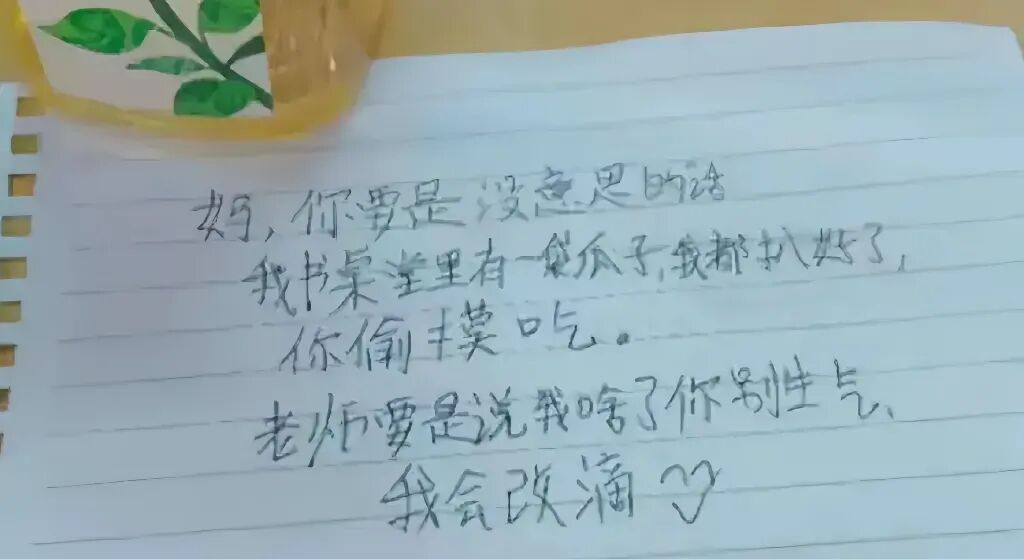 妈,你要是没意思的话
我书桌堂里有一袋瓜子,我都扒好了,
你偷摸吃。
老师要是说我啥了你别生气、
我会改滴